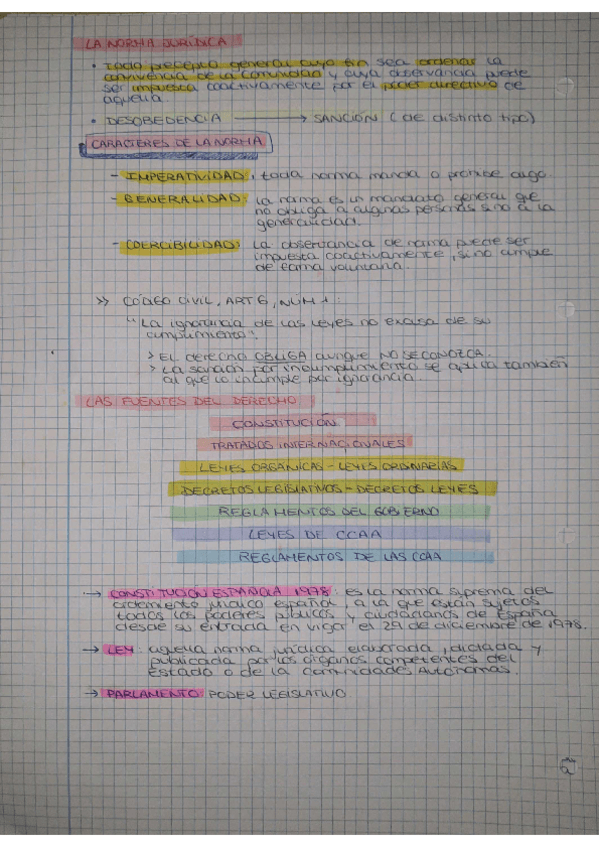 LA NORMA JURÍDICA
• Todo precepto general cuyo fin sea ordenar la
convivencia de la comunidad y cuya observancia puede
ser impuesta coactivamente por el poder directivo de
aquella.
• DESOBEDENCIA → SANCIÓN (de distinto tipo)
CARACTERES DE LA NORMA
- IMPERATIVIDAD: toda norma manda o prohibe algo.
- GENERALIDAD: la norma es un mandato general que
no obliga a algunas personas sino a la
generalidad.
- COERCIBILIDAD: la observancia de norma puede ser
impuesta coactivamente, si no cumple
de forma voluntaria.
>> CÓDIGO CIVIL, ART 6, NÚM 1:
"La ignorancia de las leyes no excusa de su
cumplimiento".
> EL derecho OBLIGA aunque NO SE CONOZCA.
> La sanción por incumplimiento se aplica también
al que lo incumple por ignorancia.
LAS FUENTES DEL DERECHO
CONSTITUCIÓN
TRATADOS INTERNACIONALES
LEYES ORGÁNICAS - LEYES ORDINARIAS
DECRETOS LEGISLATIVOS - DECRETOS LEYES
REGLAMENTOS DEL GOBIERNO
LEYES DE CCAA
REGLAMENTOS DE LAS CCAA
→ CONSTITUCIÓN ESPAÑOLA 1978: es la norma suprema del
ordamiento jurídico español, a la que están sujetos
todos los poderes públicos y ciudadanos de España
desde su entrada en vigor el 29 de diciembre de 1978.
→ LEY: aquella norma jurídica elaborada, dictada y
publicada por los órganos competentes del
Estado o de la Comunidades Autónomas.
→ PARLAMENTO: PODER LEGISLATIVO